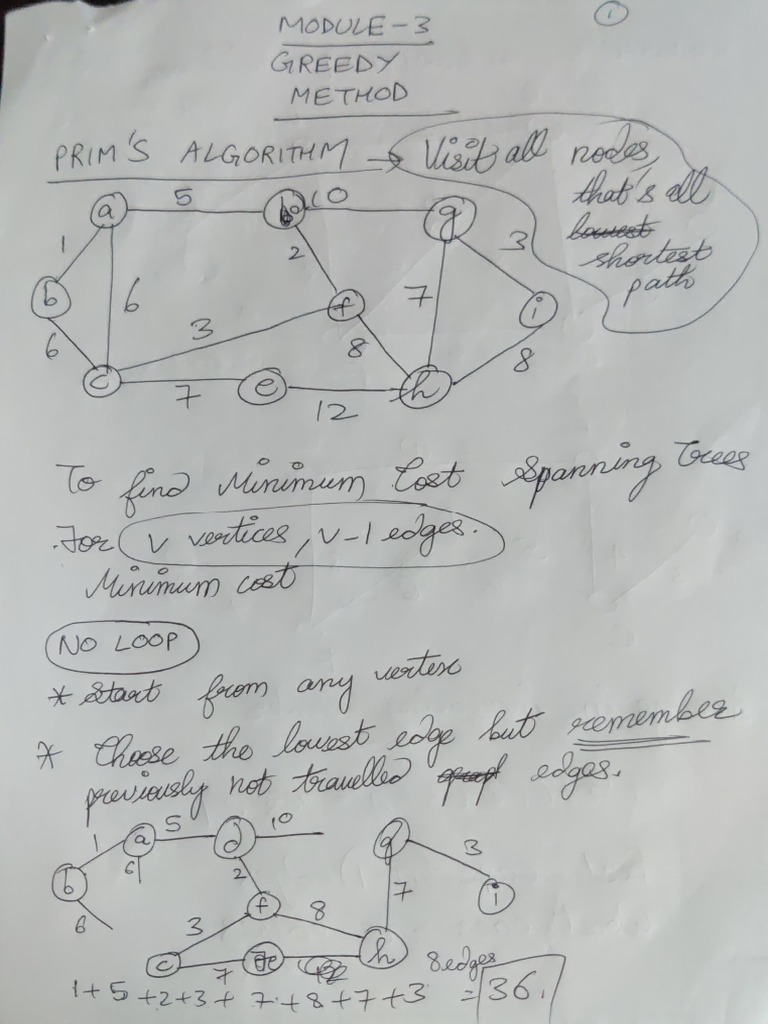 ①
MODULE-3
GREEDY
METHOD
PRIM'S ALGORITHM → Visit all nodes,
that's all
lowest
shortest
path
a 5 10 g
1 2 3
b 6 7 i
3 f
6 8 8
c 7 e 12 h
To find Minimum Cost Spanning Trees
For V vertices, V-1 edges.
Minimum cost
NO LOOP
* Start from any vertex
* Choose the lowest edge but remember
previously not travelled graph edges.
1 a 5 d 10 g 3
b 6 2 7 i
6 3 f 8
c 7 e h 8edges
1+5+2+3+7+8+7+3 = 36.